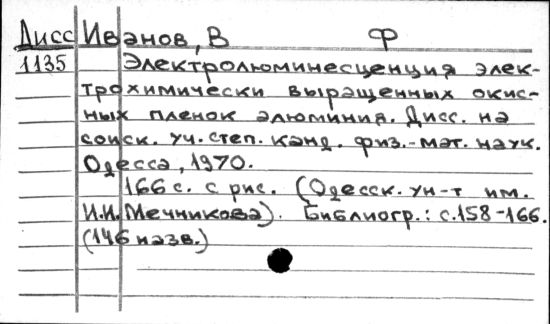 Дисс Иванов, В Ф
1135 Электролюминесценция элек-
трохимически выращенных окис-
ных пленок алюминия. Дисс. на
соиск. уч. степ. канд. физ.-мат. наук.
Одесса, 1970.
166 с. с рис. (Одесск. ун-т им.
И.И. Мечникова). Библиогр.: с.158-166.
(146 назв.)